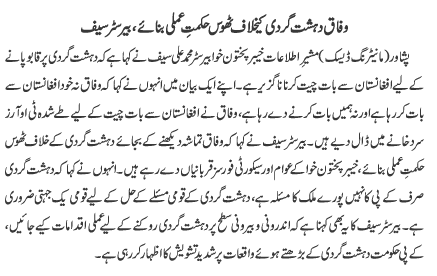 وفاق دہشت گردی کیخلاف ٹھوس حکمت عملی بنائے، بیرسٹر سیف
پشاور (مانیٹرنگ ڈیسک) مشیر اطلاعات خیبر پختون خوا بیرسٹر محمد علی سیف نے کہا ہے کہ دہشت گردی پر قابو پانے
کے لیے افغانستان سے بات چیت کرنا ناگزیر ہے۔ اپنے ایک بیان میں انہوں نے کہا کہ وفاق نہ خود افغانستان سے
بات کر رہا ہے اور نہ ہمیں بات کرنے دے رہا ہے، وفاق نے افغانستان سے بات چیت کے لیے طے شدہ ٹی او آرز
سرد خانے میں ڈال دیے ہیں۔ بیرسٹر سیف نے کہا کہ وفاق تماشہ دیکھنے کے بجائے دہشت گردی کے خلاف ٹھوس
حکمت عملی بنائے، خیبر پختون خوا کے عوام اور سیکورٹی فورسز قربانیاں دے رہے ہیں۔ انہوں نے کہا کہ دہشت گردی
صرف کے پی کا نہیں پورے ملک کا مسئلہ ہے، دہشت گردی کے قومی مسئلے کے حل کے لیے قومی یک جہتی ضروری
ہے۔ بیرسٹر سیف کا یہ بھی کہنا ہے کہ اندرونی و بیرونی سطح پر دہشت گردی روکنے کے لیے عملی اقدامات کیے جائیں،
کے پی حکومت دہشت گردی کے بڑھتے ہوئے واقعات پر شدید تشویش کا اظہار کر رہی ہے۔